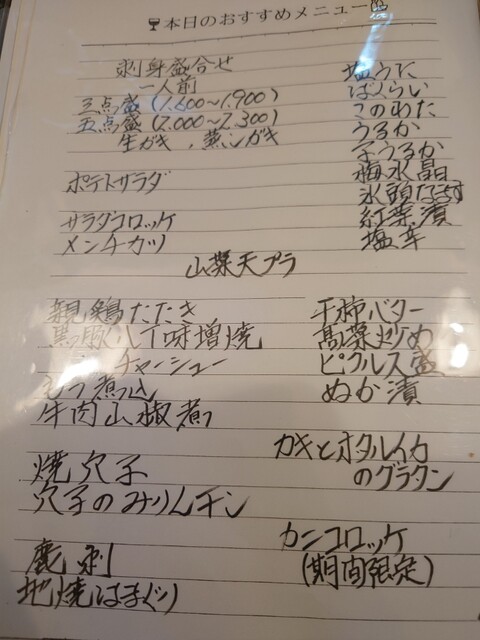 本日のおすすめメニュー
刺身盛合せ
一人前
三点盛(1.600~1.900)
五点盛(2.000~2.300)
生ガキ、蒸シガキ
ポテトサラダ
サラダコロッケ
メンチカツ
塩うに
ばくらい
このわた
うるか
子うるか
梅水晶
氷頭なます
紅葉漬
塩辛
山菜天プラ
親鶏たたき
黒豚八丁味増焼
チャーシュー
もつ煮込
牛肉山椒煮
焼穴子
穴子のみりんチン
鹿刺
地焼はまぐり
干柿バター
高菜炒め
ピクルス盛
ぬか漬
カキとホタルイカ
のグラタン
カニコロッケ
(期間限定)